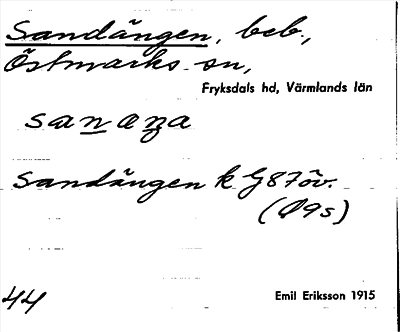 Sandängen, beb.,
Östmarks sn,
Fryksdals hd, Värmlands län
sanaŋa
Sandängen k G87öv.
(Ö9s)
44
Emil Eriksson 1915